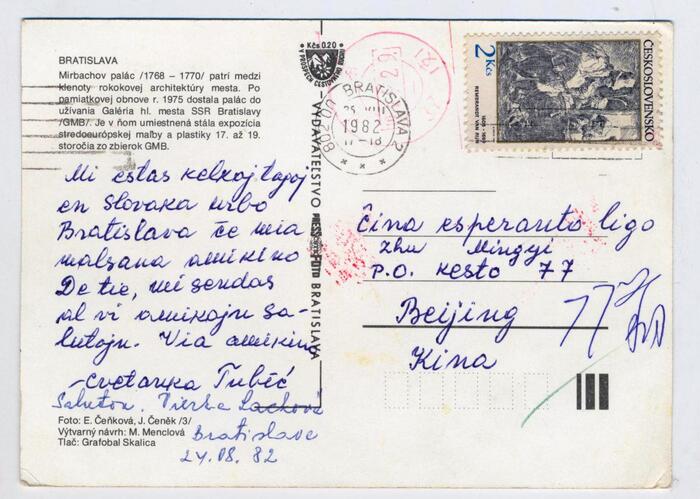 BRATISLAVA
Mirbachov palác /1768 – 1770/ patrí medzi
klenoty rokokovej architektúry mesta. Po
pamiatkovej obnove r. 1975 dostala palác do
užívania Galéria hl. mesta SSR Bratislavy
/GMB/. Je v ňom umiestnená stála expozícia
stredoeurópskej maľby a plastiky 17. až 19.
storočia zo zbierok GMB.
Mi estas kelkaj tagoj
en Slovaka urbo
Bratislava ĉe mia
malsana amikino
De tie, mi sendas
al vi amikajn sa-
lutojn. Via amikino
Cvetanka Tubić
Saluton. Vierka
Bratislava
24.08.82
Foto: E. Čeňková, J. Čeněk /3/
Výtvarný návrh: M. Menclová
Tlač: Grafobal Skalica
Kčs 0.20
VYDAVATEĽSTVO PRESSFOTO BRATISLAVA
BRATISLAVA 2
1982
17-18
ČESKOSLOVENSKO
2 Kčs
REMBRANDT VAN RIJN
Ĉina esperanto ligo
Zhu Mingyi
P.O. kesto 77
Beijing
Kina